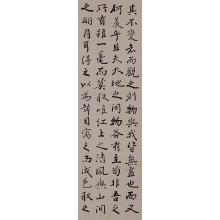 其不變者而觀之則物與我皆無盡也而又
何羨乎且夫天地之間物各有主苟非吾之
所有雖一毫而莫取唯江上之清風與山間
之明月耳得之以為聲目寓之而成色取